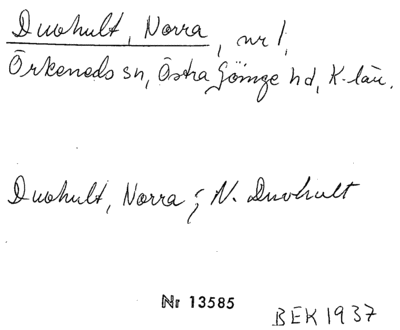 Duvhult, Norra, nr 1,
Örkeneds sn, Östra Göinge hd, K-län.
Duvhult, Norra ; N. Duvhult
Nr 13585
BEK 1937